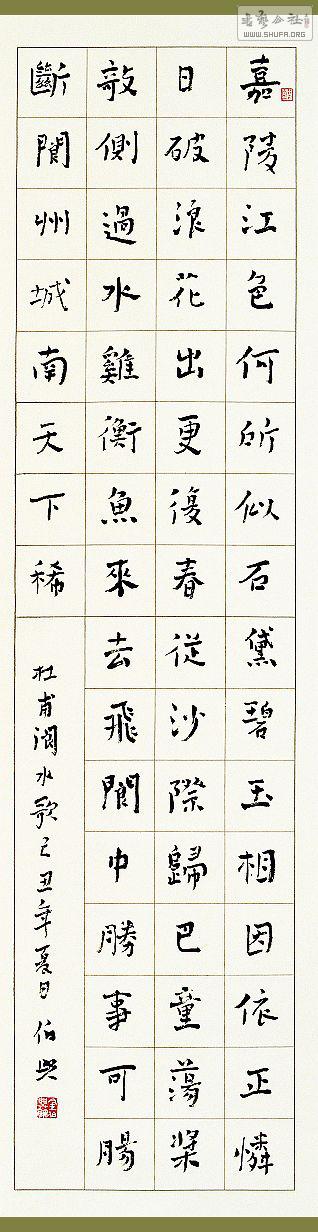 书艺公社
WWW.SHUFA.ORG
嘉陵江色何所似石黛碧玉相因依正憐
日破浪花出更復春從沙際歸巴童蕩槳
敧側過水雞衡魚來去飛閬中勝事可腸
斷閬州城南天下稀
杜甫閬水歌己丑年夏日伯